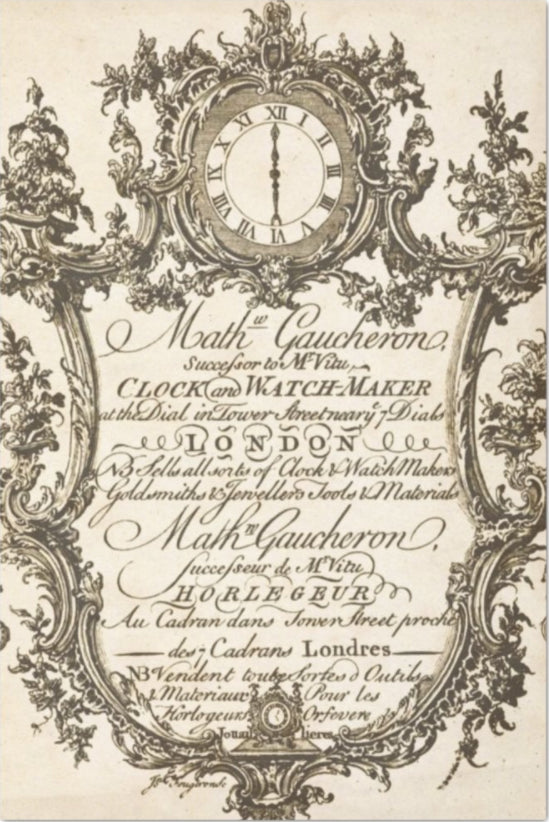 XII
I
II
III
IIII
V
VI
VII
VIII
IX
X
XI
Math.w Gaucheron,
Succeſsor to Mr Vitu,
CLOCK and WATCH-MAKER
at the Dial in Tower Street near ye 7 Dials
LONDON
NB Sells all sorts of Clock & Watch Makers
Goldsmiths & Jewellers Tools & Materials
Math.w Gaucheron,
Succeſseur de Mr Vitu
HORLEGEUR
Au Cadran dans Tower Street proche
des 7 Cadrans Londres
NB Vendent toute Sortes d Outils
& Materiaux Pour les
Horlogeurs Orfevere
Jouail lieres